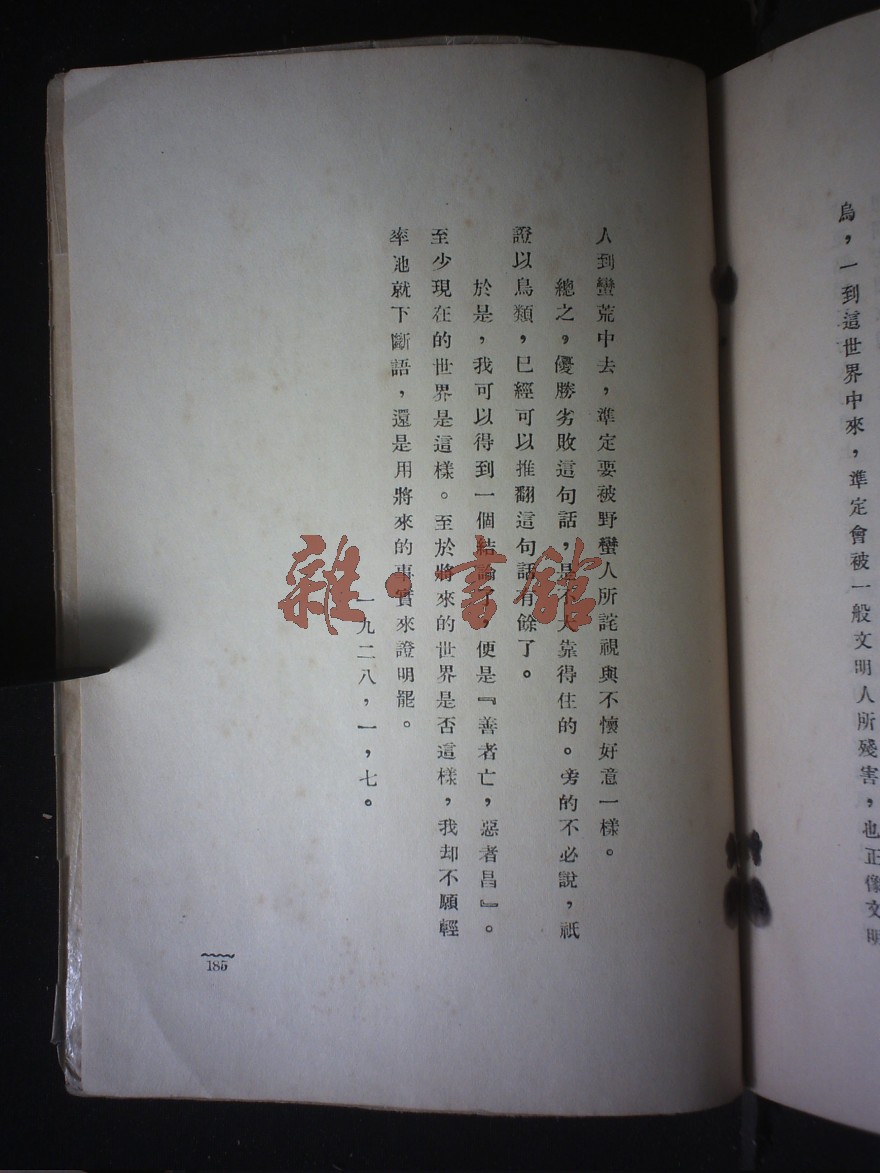 鳥，一到這世界中來，準定會被一般文明人所殘害，也正像文明
人到蠻荒中去，準定要被野蠻人所詫視與不懷好意一樣。
總之，優勝劣敗這句話，是不大靠得住的。旁的不必說，祇
證以鳥類，已經可以推翻這句話有餘了。
於是，我可以得到一個結論了，便是『善者亡，惡者昌』。
至少現在的世界是這樣。至於將來的世界是否這樣，我却不願輕
率地就下斷語，還是用將來的事實來證明罷。
一九二八，一，七。
185
雜·書館